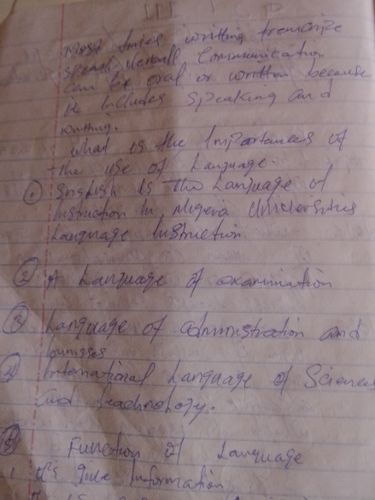 Most times writting transcribe
speech. Verball Communication
can be oral or written because
it includes speaking and
writting.
What is the Importances of
the use of Language.
① English is the Language of
Instruction in Nigeria Universities
Language Instruction
② A Language of examination
③ Language of administration and
④ International Language of Sciences
and teachnology.
⑤ Function of Language
1. It's give Information